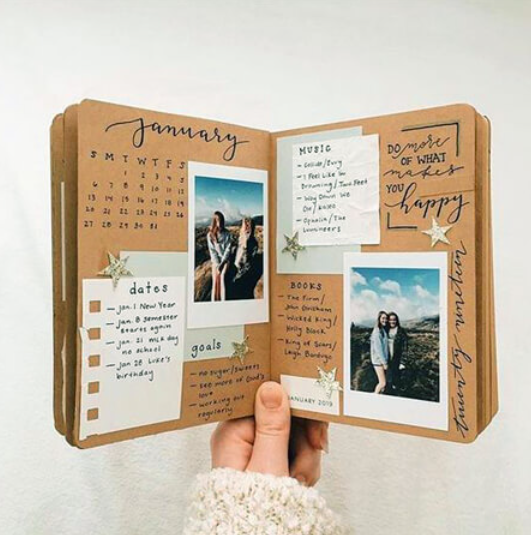 January
S M T W T F S
1 2 3 4 5
6 7 8 9 10 11 12
13 14 15 16 17 18 19
20 21 22 23 24 25 26
27 28 29 30 31
dates
– Jan. 1 New Year
– Jan. 8 Semester
starts again
– Jan 21 MLK day
no school
– Jan 28 Luke's
birthday
goals
– no sugar/sweets
– see more of God's
love
– working out
regularly
MUSIC
– Collide/Eury
– I Feel Like I'm
Drowning/Two Feet
– Way Down We
Go/Kaleo
– Ophelia/The
Lumineers
BOOKS
– The Firm/
John Grisham
– Wicked King/
Holly Black
– King of Scars/
Leigh Bardugo
JANUARY 2019
DO more
OF WHAT
makes
YOU
happy
twenty nineteen